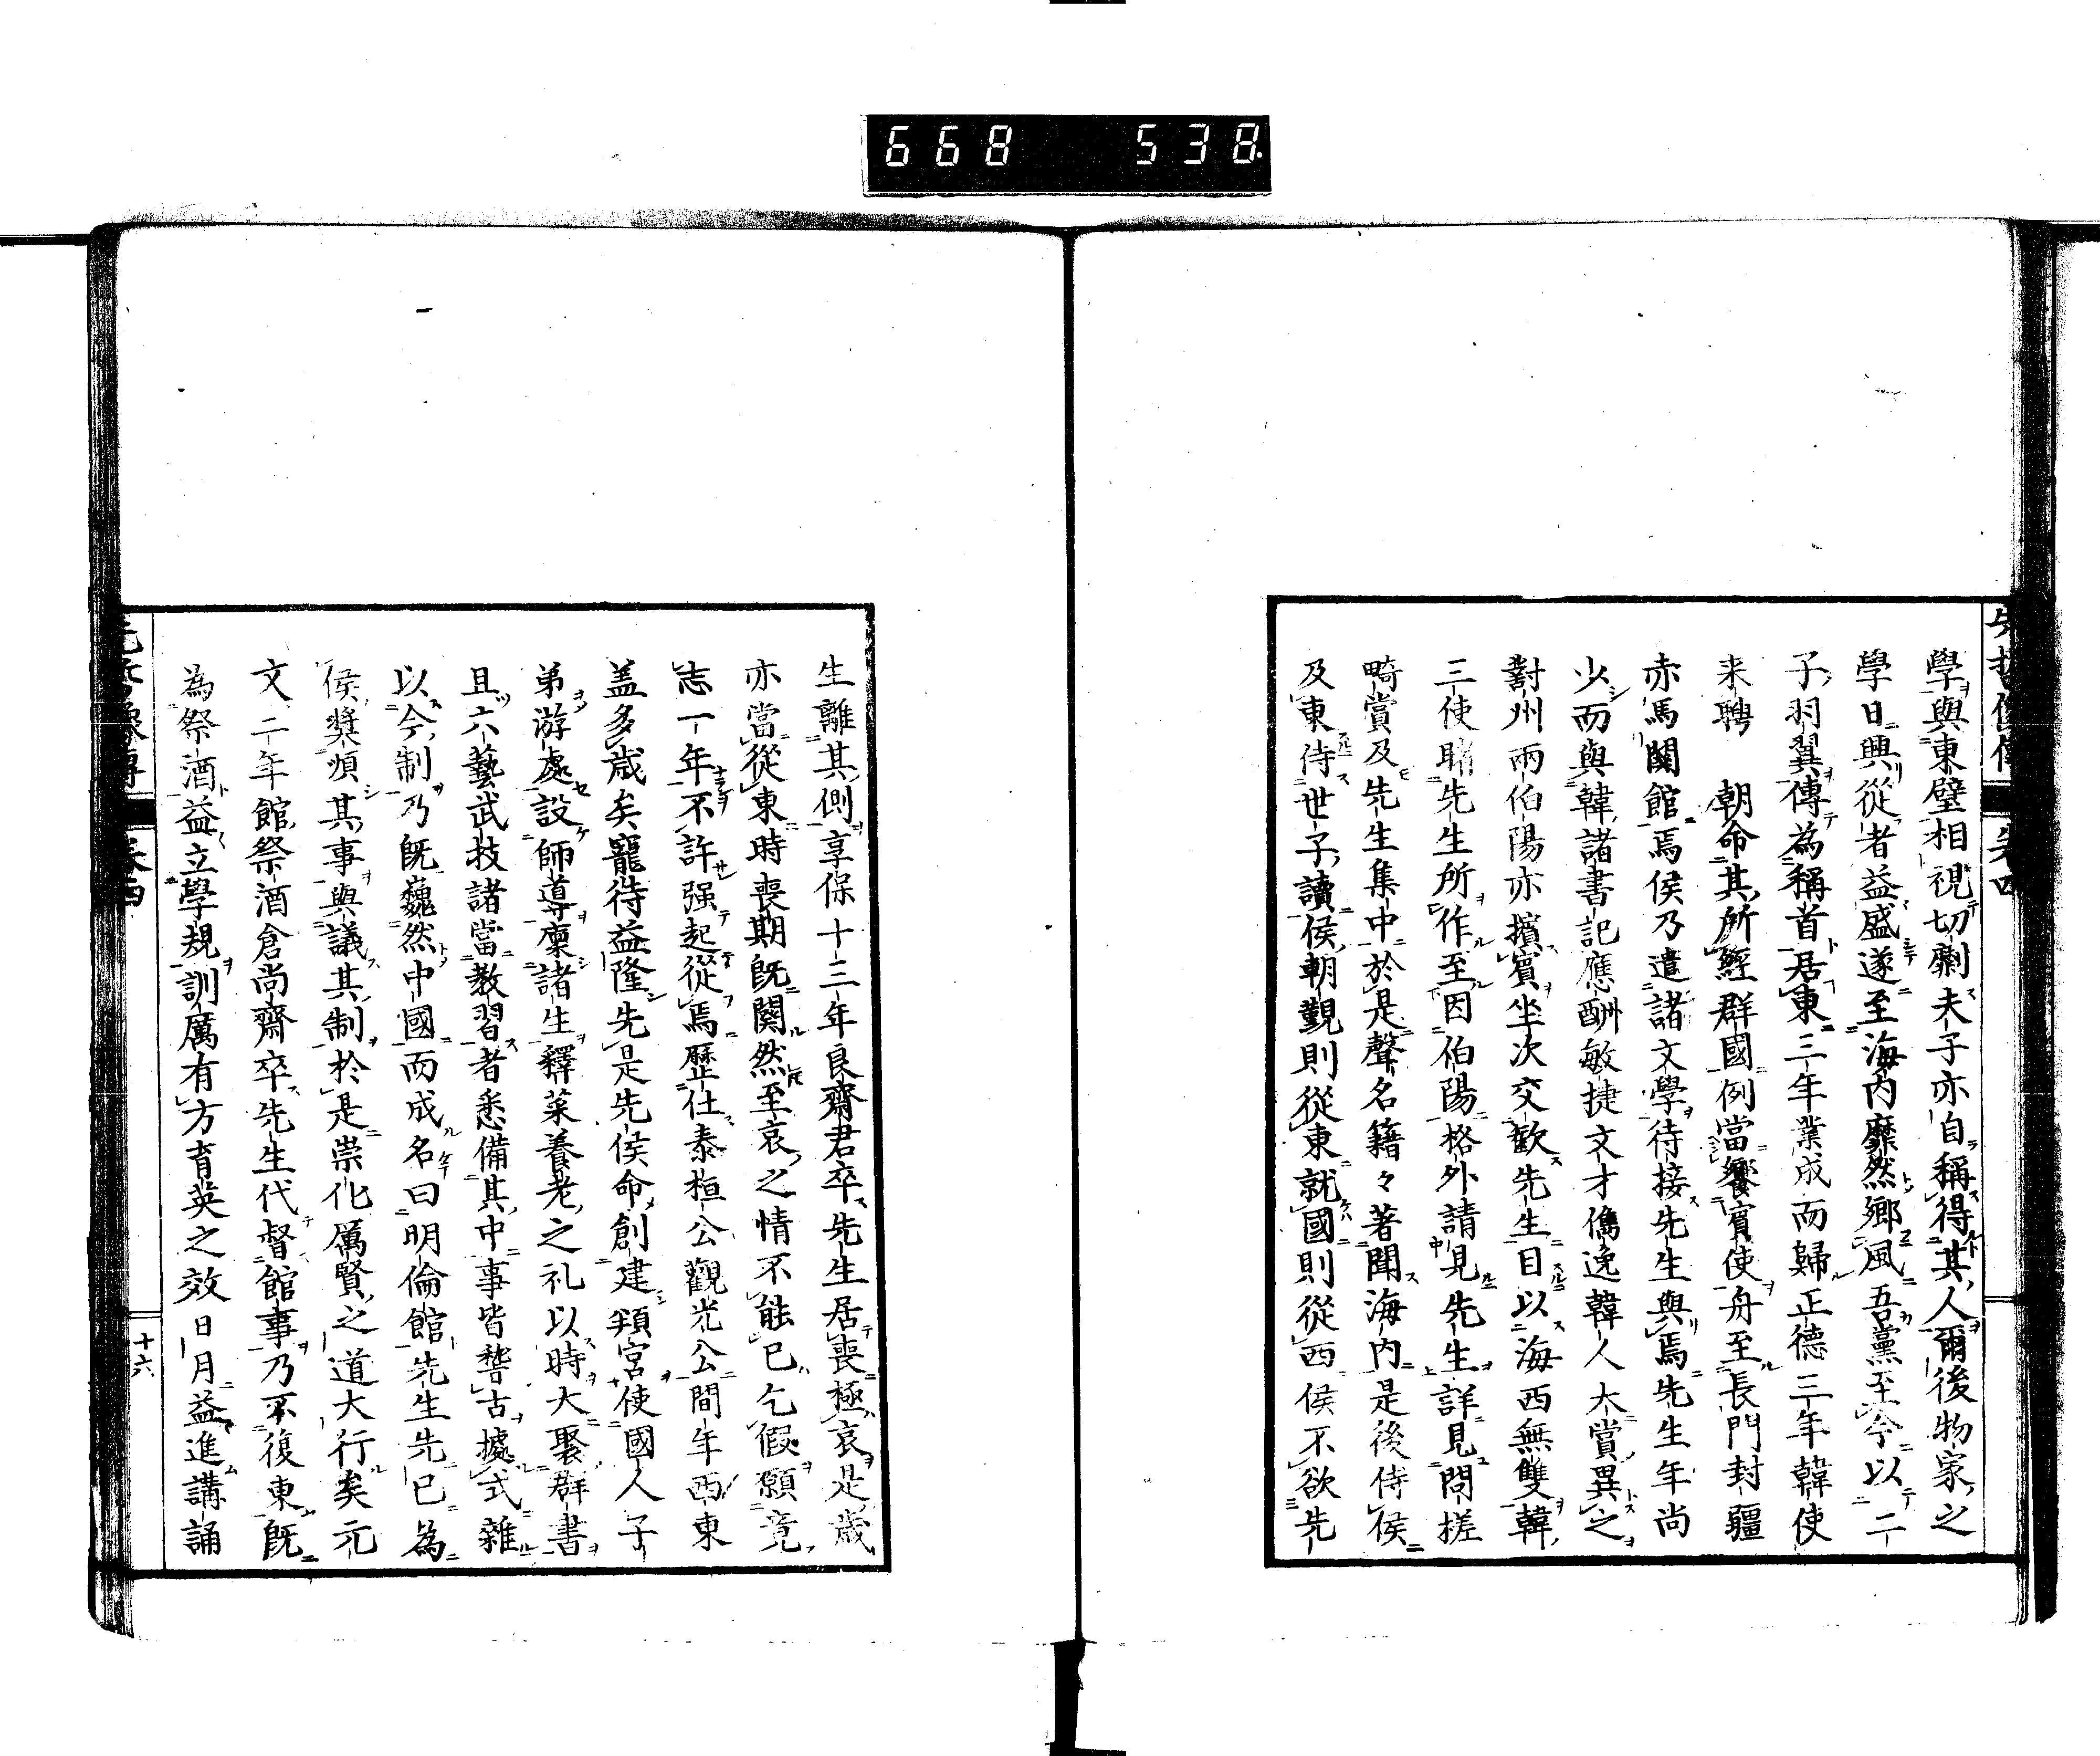 668 538.
學與東壁相視切劘夫子亦自稱得其人爾後物家之
學日興從者益盛遂至海內靡然鄉風吾黨至今以二
子羽翼傳為稱首居東三年業成而歸正德三年韓使
来聘 朝命其所經群國例當饗賓使舟至長門封疆
赤馬關館焉侯乃遣諸文學待接先生與焉先生年尚
少而與韓諸書記應酬敏捷文才儁逸韓人大賞異之
對州雨伯陽亦擯賓坐次交歡先生目以海西無雙韓
三使睹先生所作至因伯陽格外請見先生詳見問槎
畸賞及先生集中於是聲名籍々著聞海内是後侍侯
及東侍世子讀侯朝覲則從東就國則從西侯不欲先
生離其側享保十三年良齋君卒先生居喪極哀是歲
亦當從東時喪期既闋然至哀之情不能已乞假願竟
志一年不許强起從焉歷仕泰桓公觀光公間年西東
盖多歲矣寵待益隆先是先侯命創建頖宮使國人子
弟游處設師導廩諸生釋菜養老之礼以時大聚群書
且六藝武技諸當教習者悉備其中事皆瞽古據式雜
以今制乃既巍然中國而成名曰明倫館先生先已為
侯奬順其事與議其制於是崇化厲賢之道大行矣元
文二年館祭酒倉尚齋卒先生代督館事乃不復東既
為祭酒益立學規訓厲有方育英之效日月益進講誦
十六